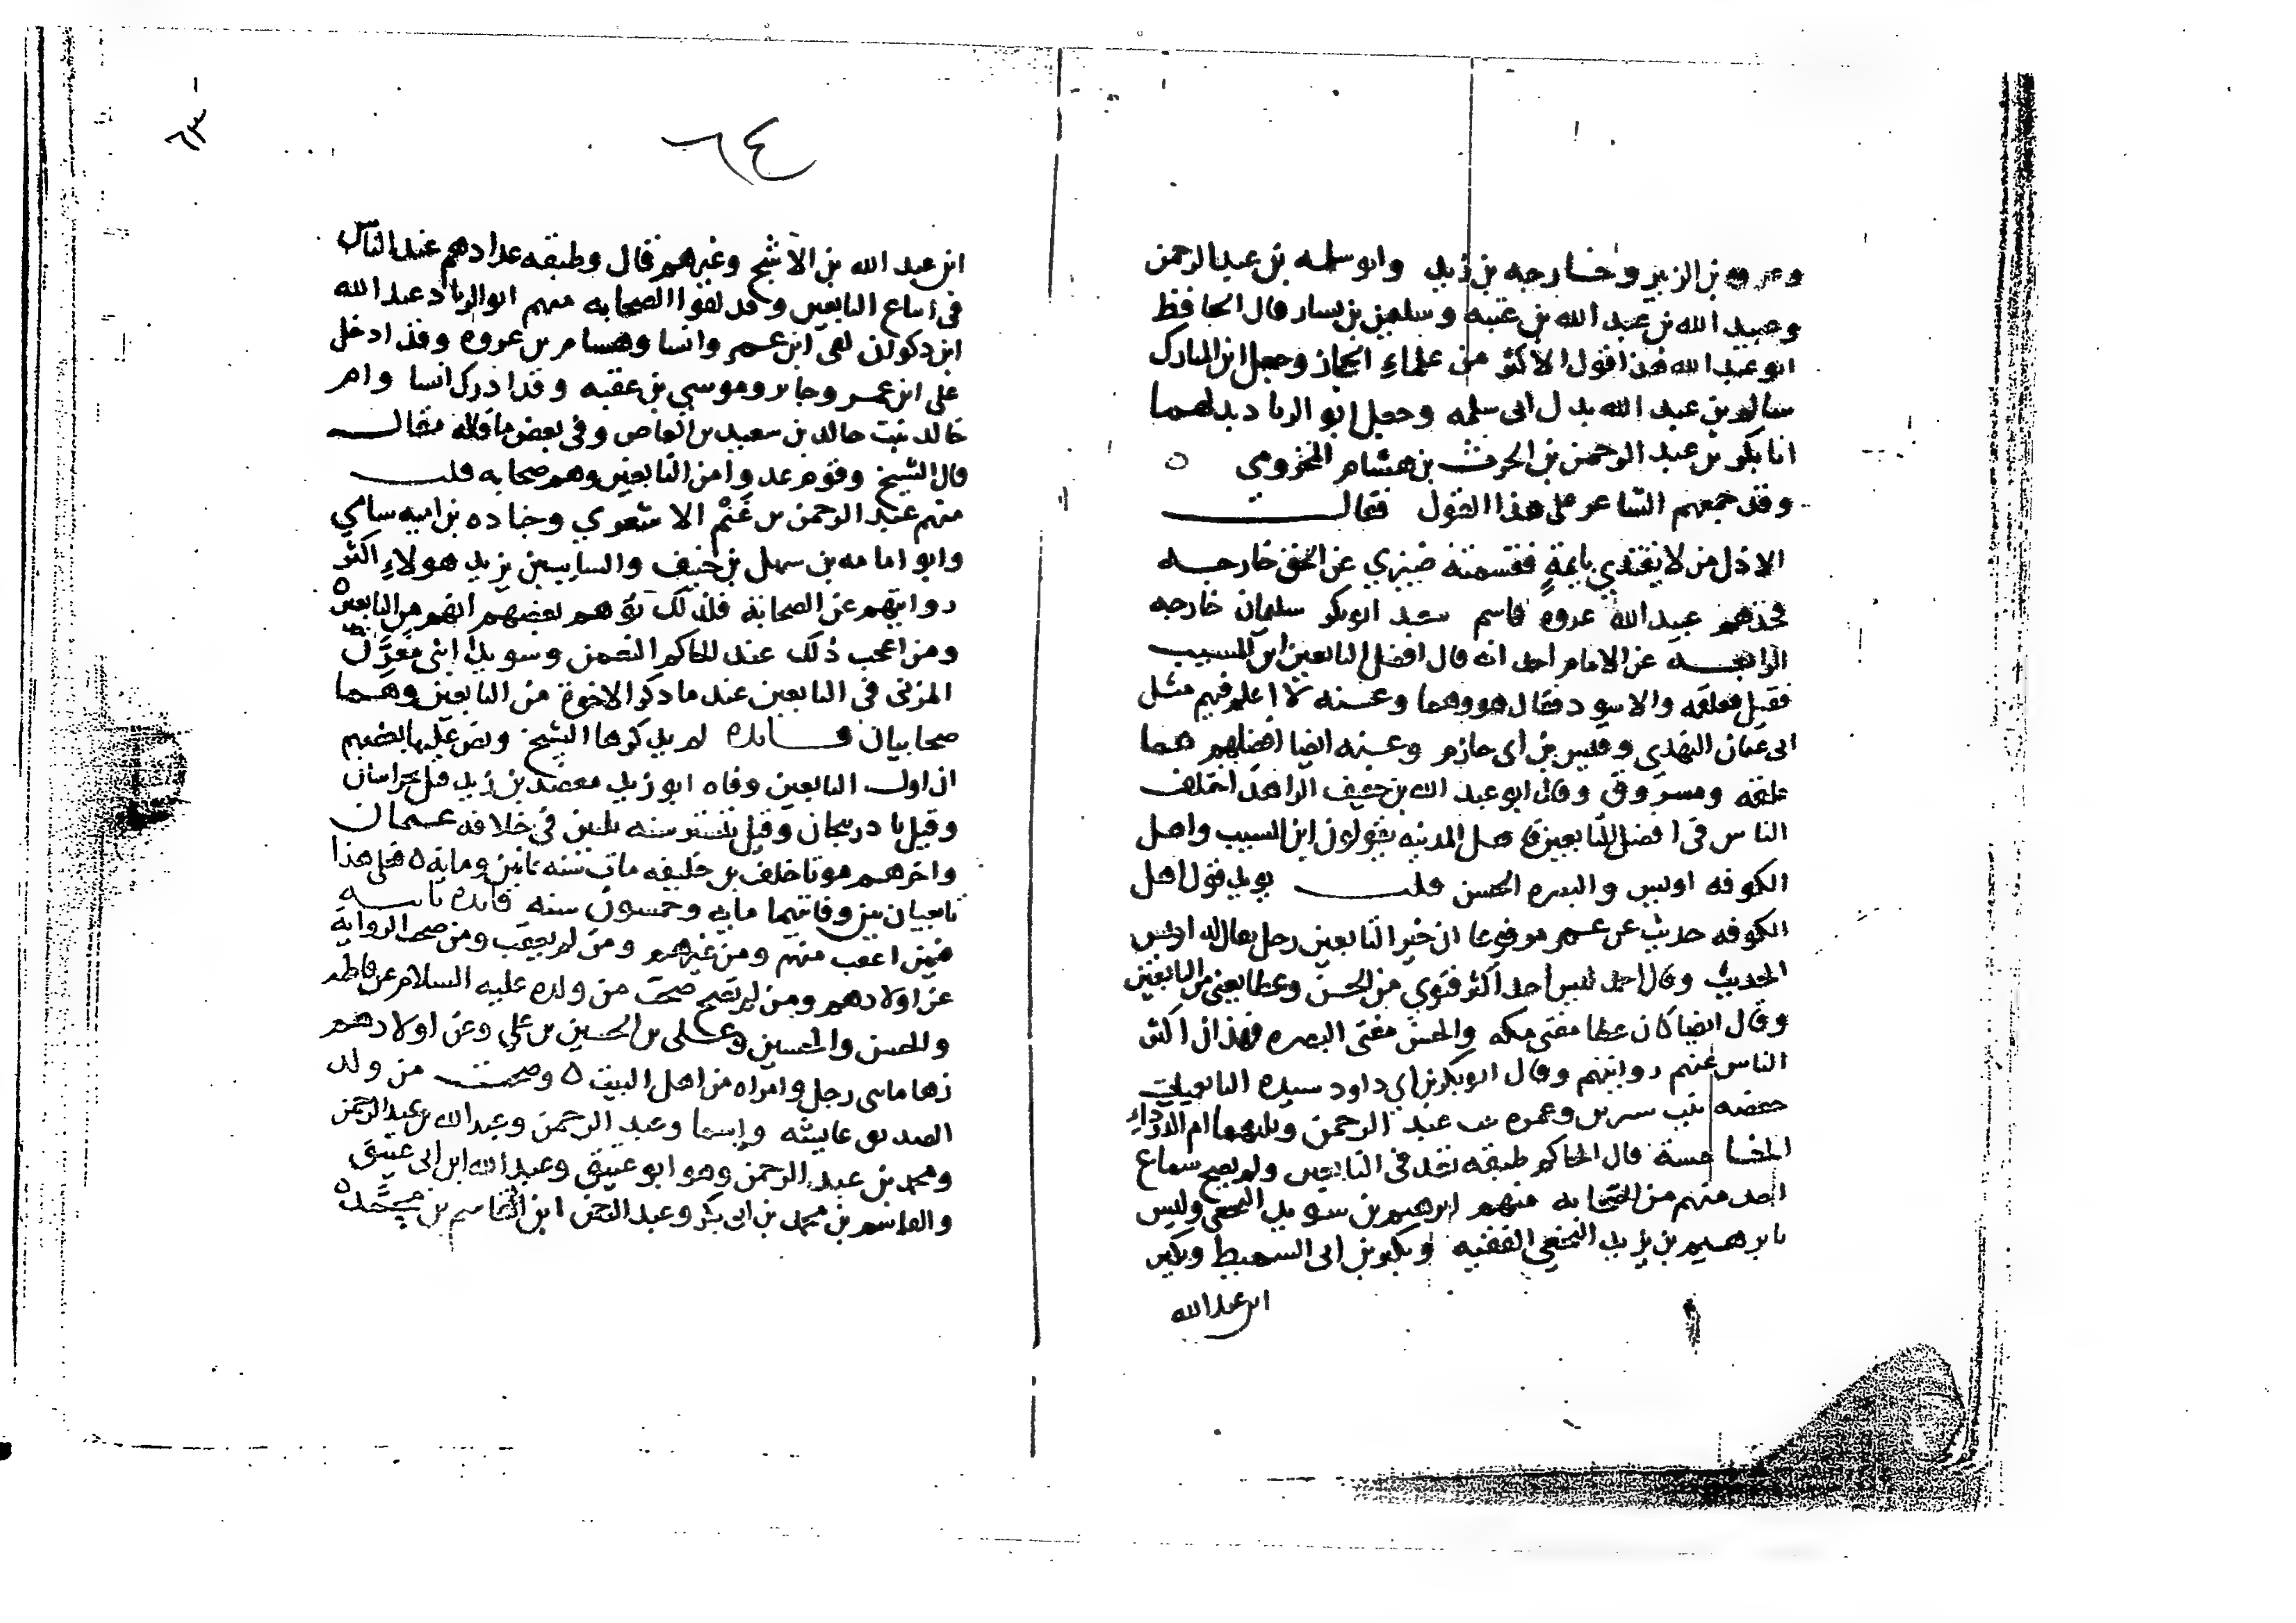 وعروه بن الزبير وخارجه بن زيد وابو سلمه بن عبد الرحمن
وعبيد الله بن عبد الله بن عتبه وسليمن بن يسار قال الحافظ
ابو عبد الله هذا قول الاكثر من علماء الحجاز وجعل ابن المبارك
سالم بن عبد الله بدل ابى سلمه وجعل ابو الزناد بدلهما
ابا بكر بن عبد الرحمن بن الحرث بن هشام المخزومى ه
وقد جمعهم الشاعر على هذا القول فقال
الا كل من لا يقتدي بايمةٍ فقسمته ضيزي عن الحق خارجه
فخذهم عبيد الله عروه قاسم سعيد ابو بكر سليمان خارجه
الرابعه عن الامام احمد انه قال افضل التابعين ابن المسيب
فقيل فعلقمه والاسود فقال هو وهما وعنه لا اعلم فيهم مثل
ابى عثمان النهدي وقيس بن ابى حازم وعنه ايضا افضلهم هما
علقمه ومسروق وقال ابو عبد الله بن خفيف الزاهد اختلف
الناس فى افضل التابعين فاهل المدينه يقولون ابن المسيب واهل
الكوفه اويس والبصره الحسن قلت يويد قول اهل
الكوفه حديث عن عمر مرفوعا ان خير التابعين رجل يقال له اويس
الحديث وقال احمد ليس احد اكثر فتوي من الحسن وعطا يعنى من التابعين
وقال ايضا كان عطا مفتى مكه والحسن مفتى البصره فهذان اكثر
الناس عنهم روايتهم وقال ابو بكر بن ابي داود سيده التابعيات
حفصه بنت سيرين وعمره بنت عبد الرحمن ويليهما ام الدرداءِ
الخامسة قال الحاكم طبقه تعد فى التابعين ولم يصح سماع
احد منهم من الصحابه منهم ابرهيم بن سويد النخعى وليس
بابرهيم بن يزيد النخعي الفقيه وبكير بن ابى السميط وبكير
ابن عبد الله
٦٤
ابن عبد الله بن الاشج وغيرهم قال وطبقه عدادهم عند الناس
فى اتباع التابعين وقد لقوا الصحابه منهم ابو الزناد عبد الله
ابن ذكوان لقى ابن عمر وانسا وهشام بن عروه وقد ادخل
على ابن عمر وجابر وموسي بن عقبه وقد ادرك انسا وام
خالد بنت خالد بن سعيد بن العاص وفى بعض ما قاله مقال
قال الشيخ وقوم عدوا من التابعين وهم صحابه قلت
منهم عبد الرحمن بن غَنْم الاشعري وجناده بن اميه
وابو امامه بن سهل بن حنيف والسايب بن يزيد هولاءِ اكثر
روايتهم عن الصحابة فلذلك توهم بعضهم انهم من التابعين ه
ومن اعجب ذلك عند الحاكم النعمن وسويدا ابنى مقرّن
المزنى فى التابعين عند ما ذكر الاخوة من التابعين وهما
صحابيان فايده لم يذكرها الشيخ ونص عليها بعضهم
ان اول التابعين وفاه ابو زيد معضد بن زيد قتل بخراسان
وقيل باذربيجان وقيل بتستر سنه ثلثين فى خلافه عثمان
واخرهم موتا خلف بن خليفه مات سنه ثمانين ومايه ه فعلى هذا
تابعيان بين وفاتيهما مايه وخمسون سنه فايده ثانيه
فيمن اعقب منهم ومن غيرهم ومن لم يعقب ومن صحت الرواية
عن اولادهم ومن لم تصح صحت من ولده عليه السلام عن فاطمه
والحسن والحسين وعلى بن الحسين بن علي وعن اولادهم
زها مايتى رجل وامراه من اهل البيت ه وصحت من ولد
الصديق عايشه واسما وعبد الرحمن وعبد الله بن عبد الرحمن
ومحمد بن عبد الرحمن وهو ابو عتيق وعبد الله ابن ابى عتيق
والقاسم بن محمد بن ابى بكر وعبد الرحمن ابن القاسم بن محمد ه